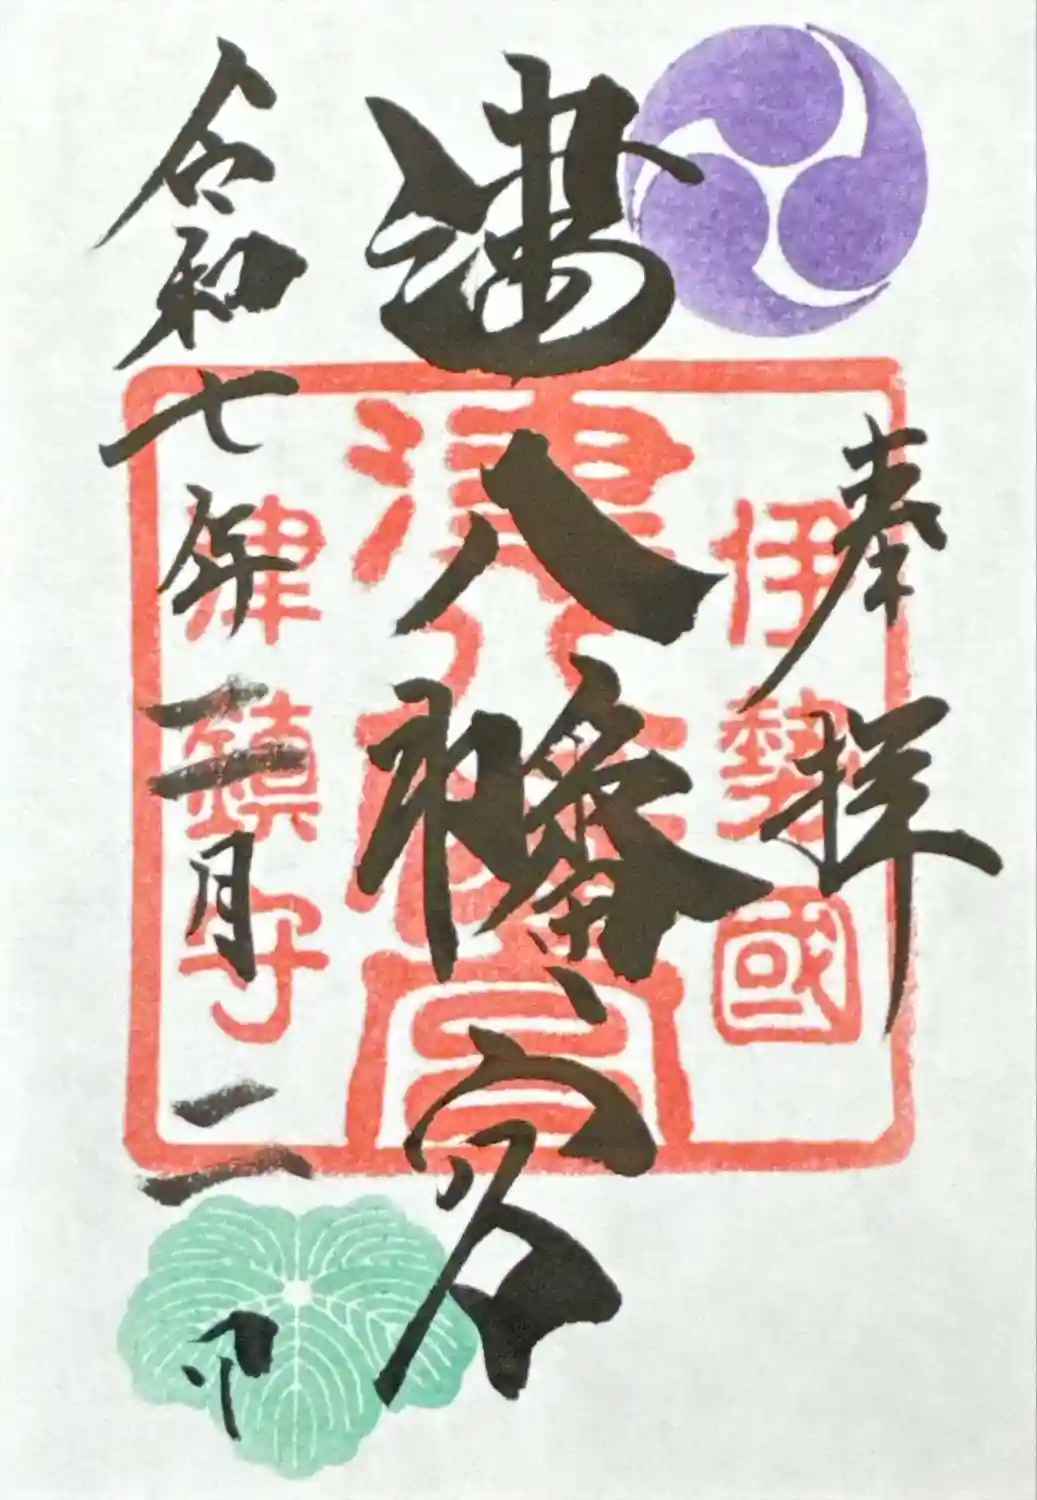 奉拝
伊勢國
津八幡宮
津八幡宮
津鎮守
令和七年二月二日